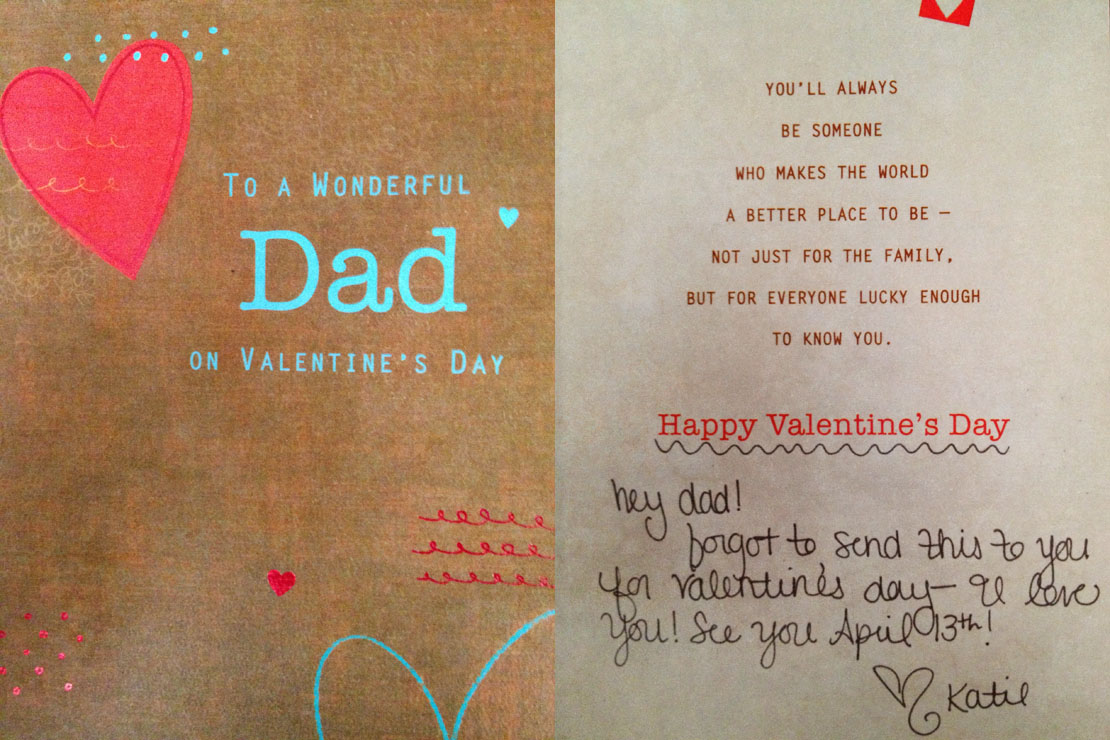 To a Wonderful
Dad
on Valentine's Day
YOU'LL ALWAYS
BE SOMEONE
WHO MAKES THE WORLD
A BETTER PLACE TO BE —
NOT JUST FOR THE FAMILY,
BUT FOR EVERYONE LUCKY ENOUGH
TO KNOW YOU.
Happy Valentine's Day
hey dad!
forgot to send this to you
for valentine's day— I love
you! See you April 13th!
Katie